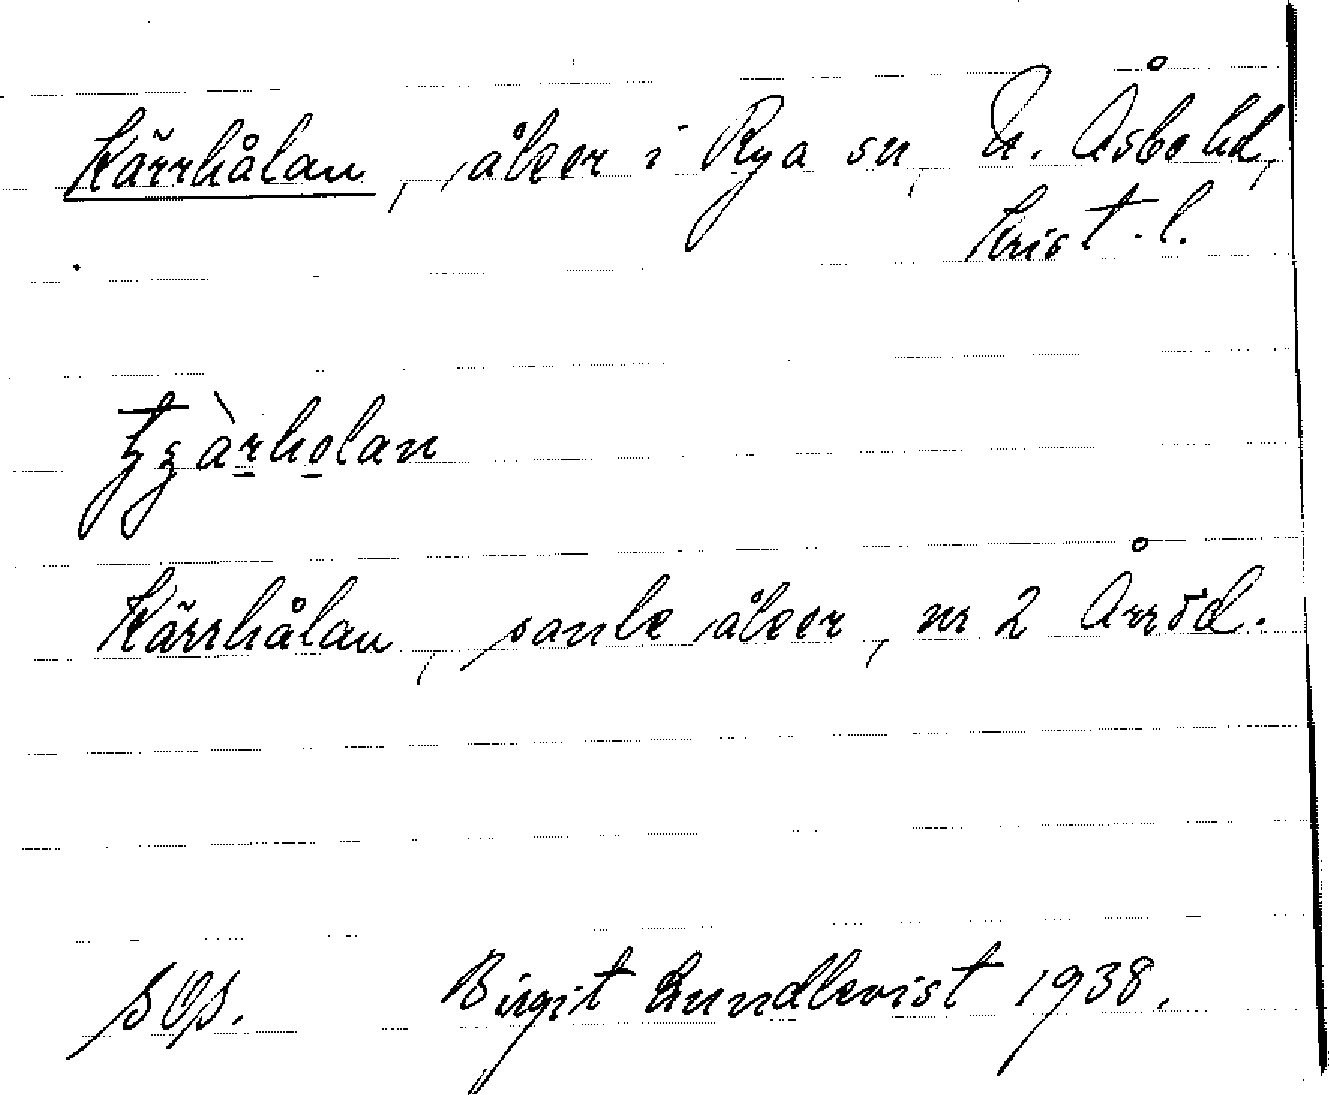 Kärrhålan, åker i Rya sn, N. Åsbo hd,
Krist. l.
tʒàrholan
Kärrhålan, sank åker, nr 2 Årröd.
Birgit Lundkvist 1938.